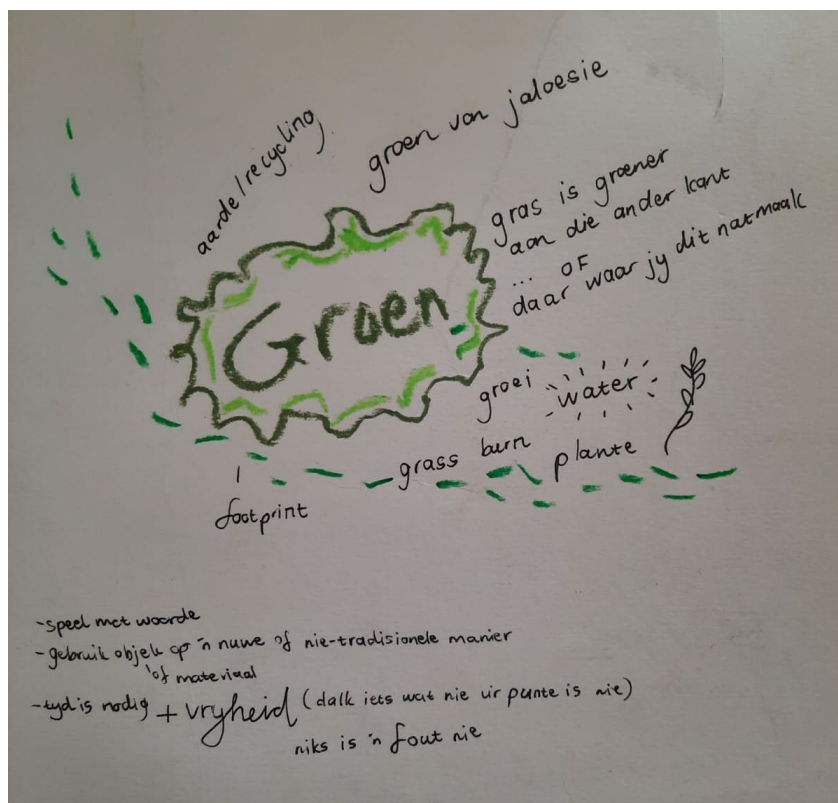 aarde/recycling
groen van jaloesie
gras is groener
aan die ander kant
... OF
daar waar jy dit natmaak
Groen
groei
water
grass burn
plante
footprint
-speel met woorde
-gebruik objek op 'n nuwe of nie-tradisionele manier
'of materiaal
-tyd is nodig + vryheid (dalk iets wat nie vir punte is nie)
niks is 'n fout nie